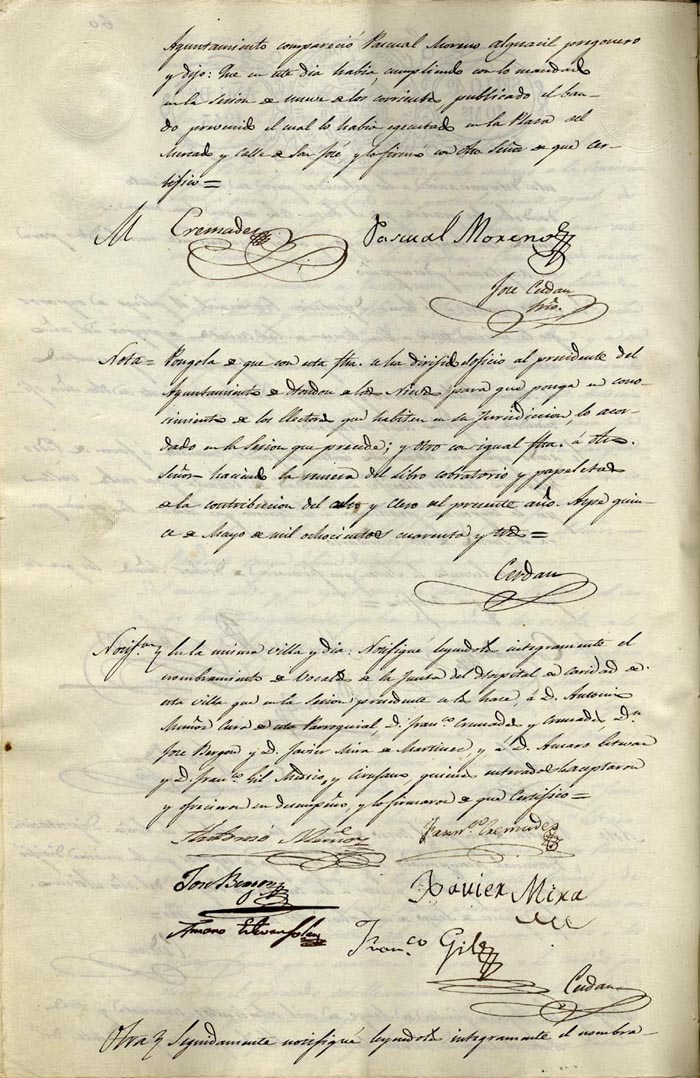 Ayuntamiento compareció Pascual Moreno alguacil pregonero
y dijo: Que en este dia habia, cumpliendo con lo mandado
en la Sesion de nueve de los corrientes publicado el ban-
do prevenido el cual lo habia egecutado en la Plaza del
Mercado y Calle de San José, y lo firmó con dho Señor de que cer-
tifico =
M Cremades Pascual Moreno
José Cerdan
Srio.
Nota = Pongola de que con esta fha. se ha dirijido oficio al presidente del
Ayuntamiento de Hondon de las Nieves para que ponga en cono-
cimiento de los Electores que habiten en su Jurisdiccion, lo acor-
dado en la Sesion que precede; y otro con igual fha. á dho.
Señor haciendo la remesa del libro cobratorio y papeletas
de la contribucion del culto y Clero del presente año. Aspe quin-
ce de Mayo de mil ochocientos cuarenta y tres =
Cerdan
Notifon. En la misma villa y dia: Notifiqué leyendola integramente el
nombramiento de Vocales de la Junta del Hospital de caridad de
esta villa que en la Sesion precedente se les hace, á D. Antonio
Muñoz Cura de esta Parroquial, D. Franco. Cremades y Cremades, Dn.
José Bergon y D. Javier Mira de Martinez, y á D. Amaro Estevan
y D. Franco. Gil Medico, y Cirujano, quienes enterados la aceptaron
y ofrecieron su desempeño, y lo firmaron de que Certifico =
Muñoz Franco. Cremades
José Bergon Xavier Mira
Amaro Estevan
Franco. Gil
Cerdan
Otra Seguidamente notifiqué leyendola integramente el nombra-